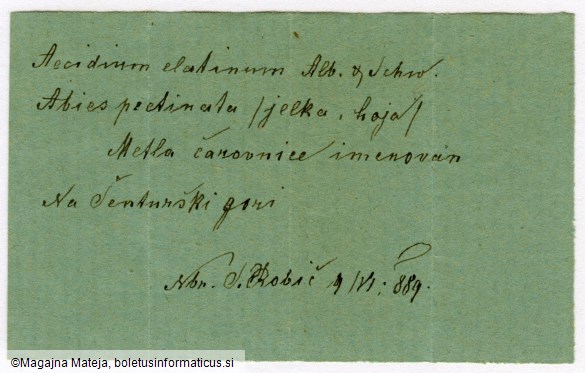 Aecidium elatinum Alb. & Schw.
Abies pectinata /jelka, hoja/
Metla čarovnice imenovan
Na Šenturški gori
Nbr. S. Robič 9/VI. 889.
©Magajna Mateja, boletusinformaticus.si